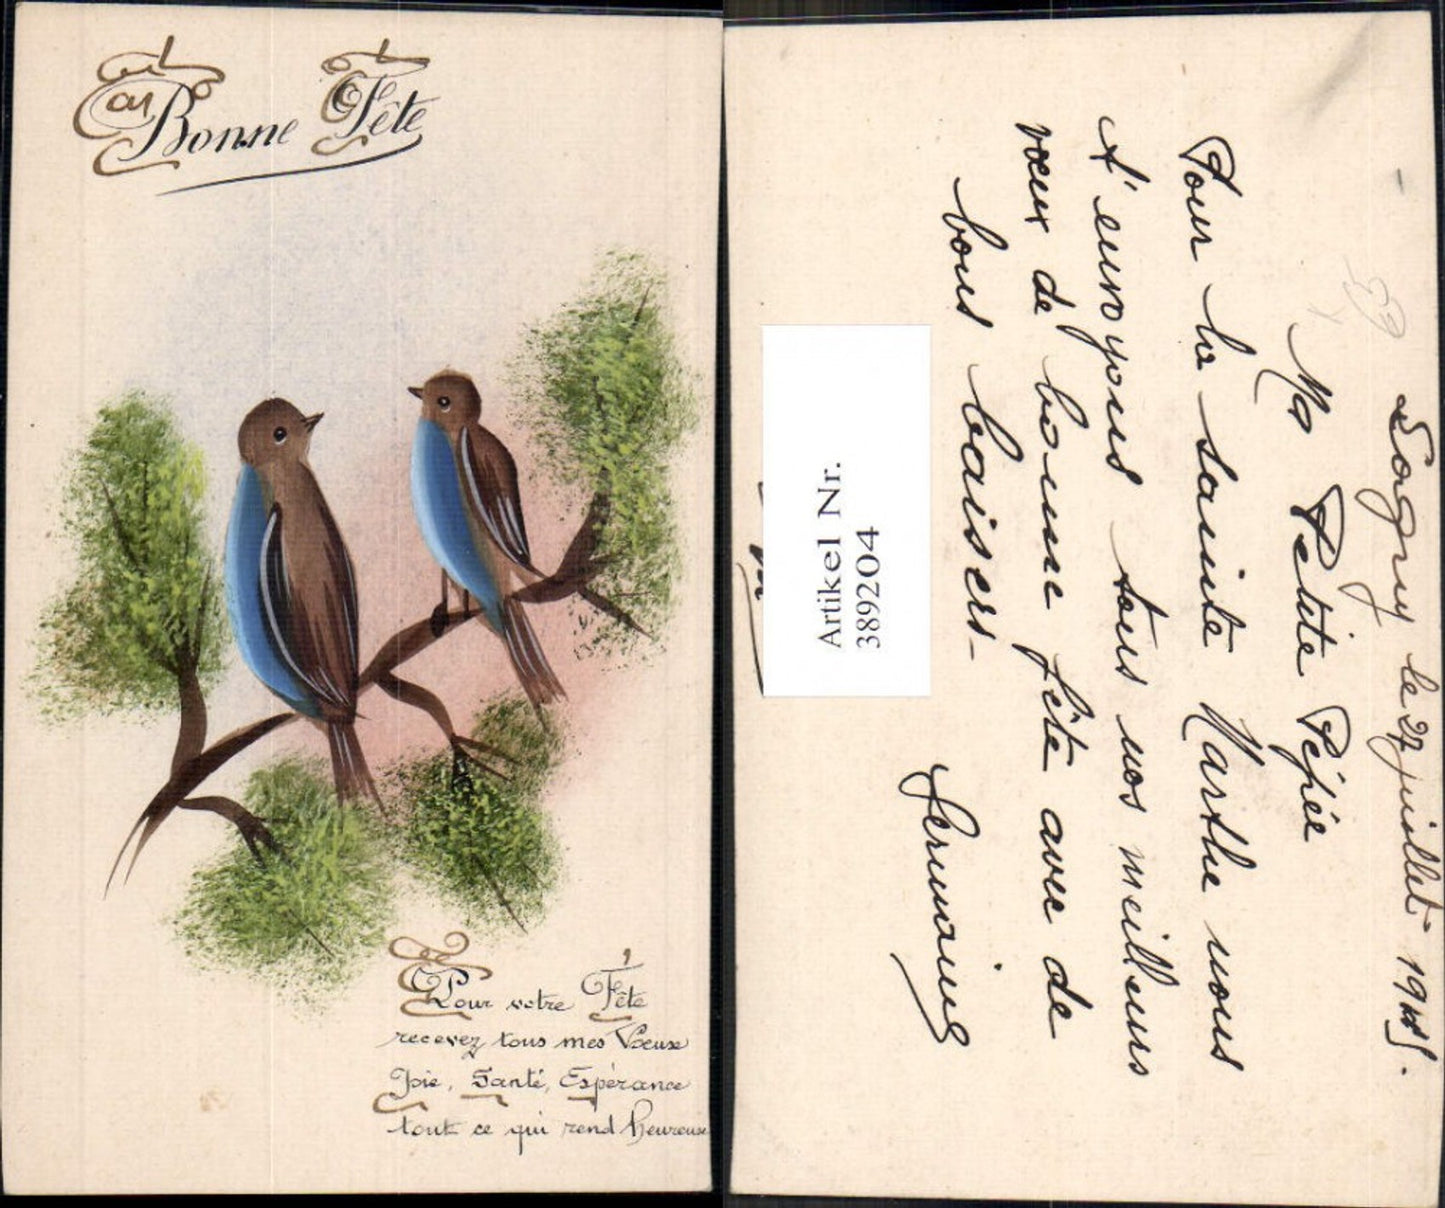 Bonne Fête
Pour votre Fête
recevez tous mes Vœux
Joie, Santé, Espérance
tout ce qui rend heureuse
Lagny le 27 juillet
Ma Petite Pépée
Pour la sainte Marthe nous
t'envoyons tous nos meilleurs
vœux de bonne fête avec de
bons baisers-
Germaine
Artikel Nr.
389204